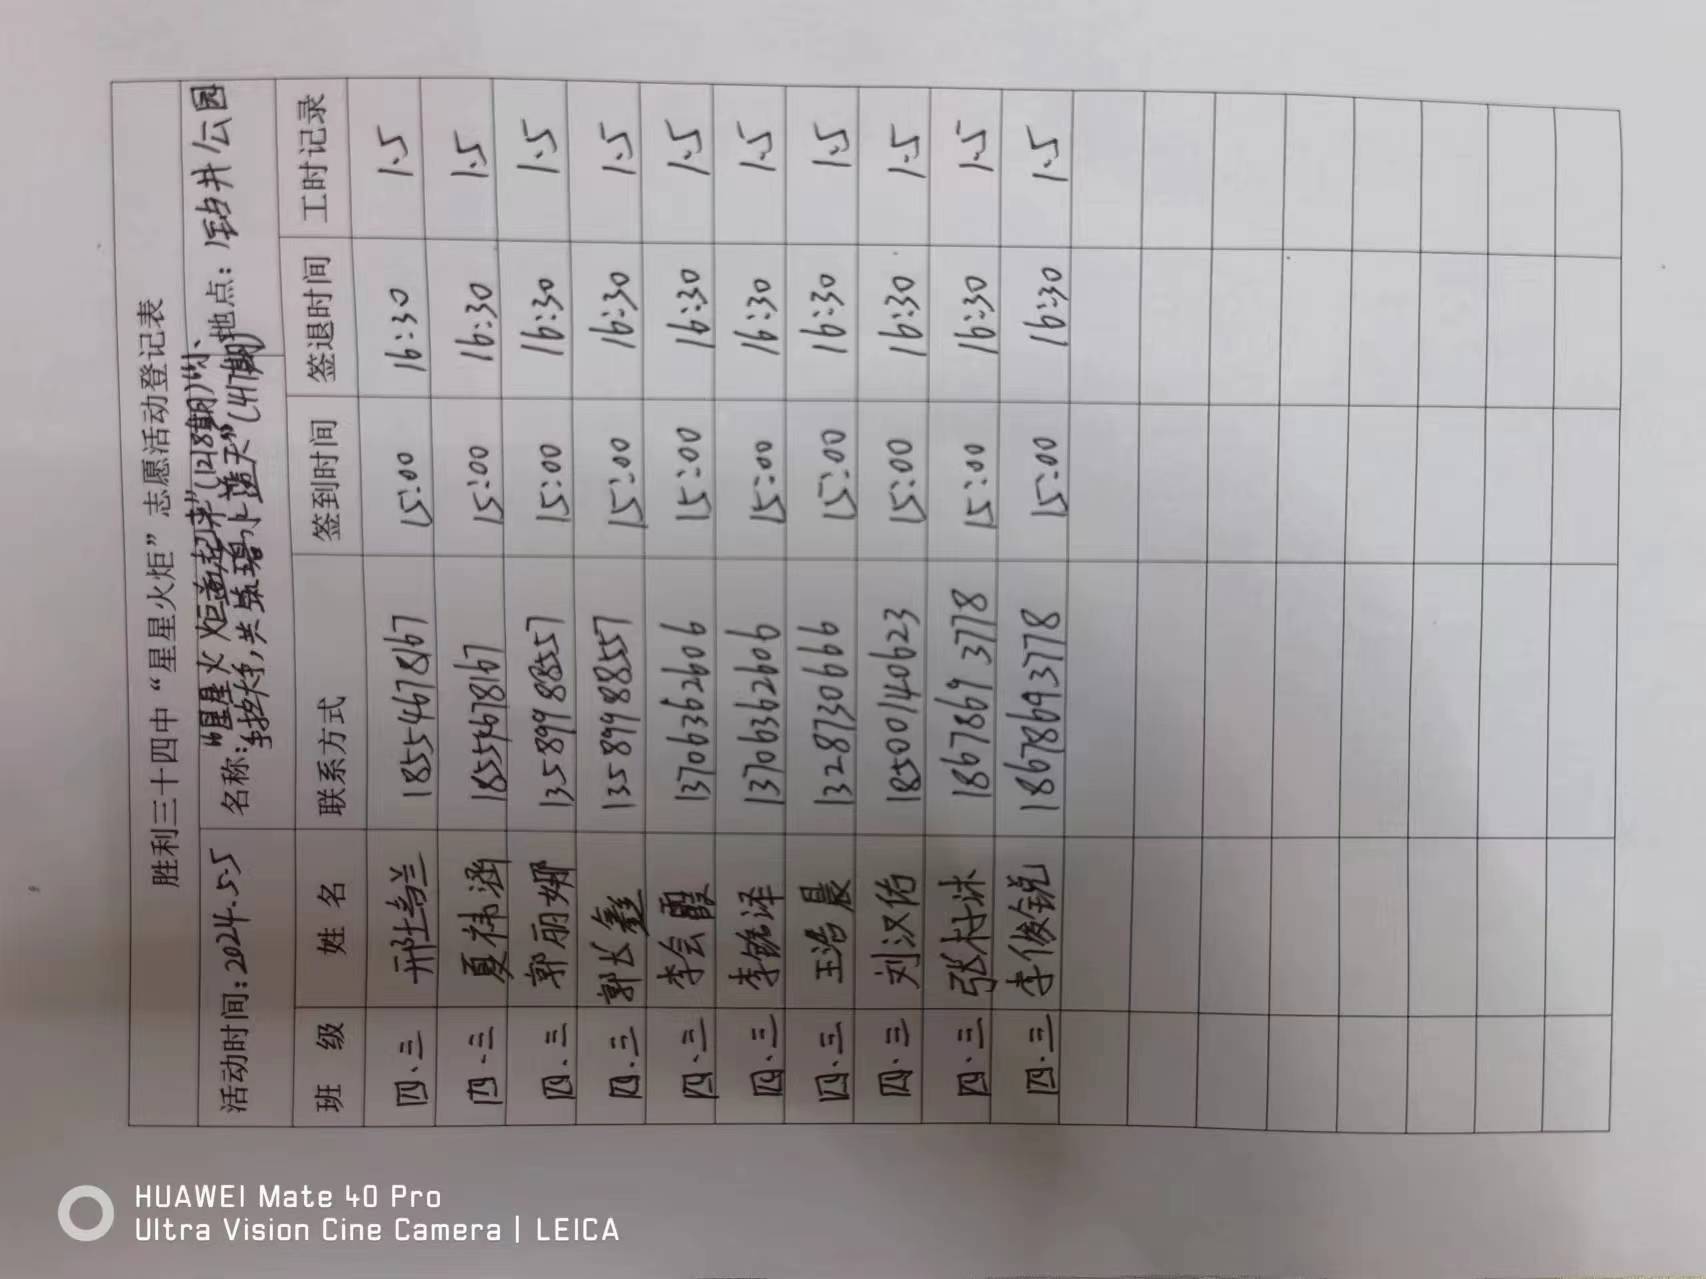 胜利三十四中“星星火炬”志愿活动登记表
活动时间:2024.5.5 名称:“星星火炬 (1218期)“小、 地点:钻井公园
共筑碧水蓝天”(417期)
班 级 姓 名 联系方式 签到时间 签退时间 工时记录
四.三 邢 兰 18554678167 15:00 16:30 1.5
四.三 夏祎涵 18554678167 15:00 16:30 1.5
四.三 郭丽娜 13589988557 15:00 16:30 1.5
四.三 郭长鑫 13589988557 15:00 16:30 1.5
四.三 李会霞 13706362606 15:00 16:30 1.5
四.三 李铭泽 13706362606 15:00 16:30 1.5
四.三 王浩晨 13287306666 15:00 16:30 1.5
四.三 刘汉佑 18500140623 15:00 16:30 1.5
四.三 张村沐 18678693778 15:00 16:30 1.5
四.三 李俊锐 18678693778 15:00 16:30 1.5
HUAWEI Mate 40 Pro
Ultra Vision Cine Camera | LEICA